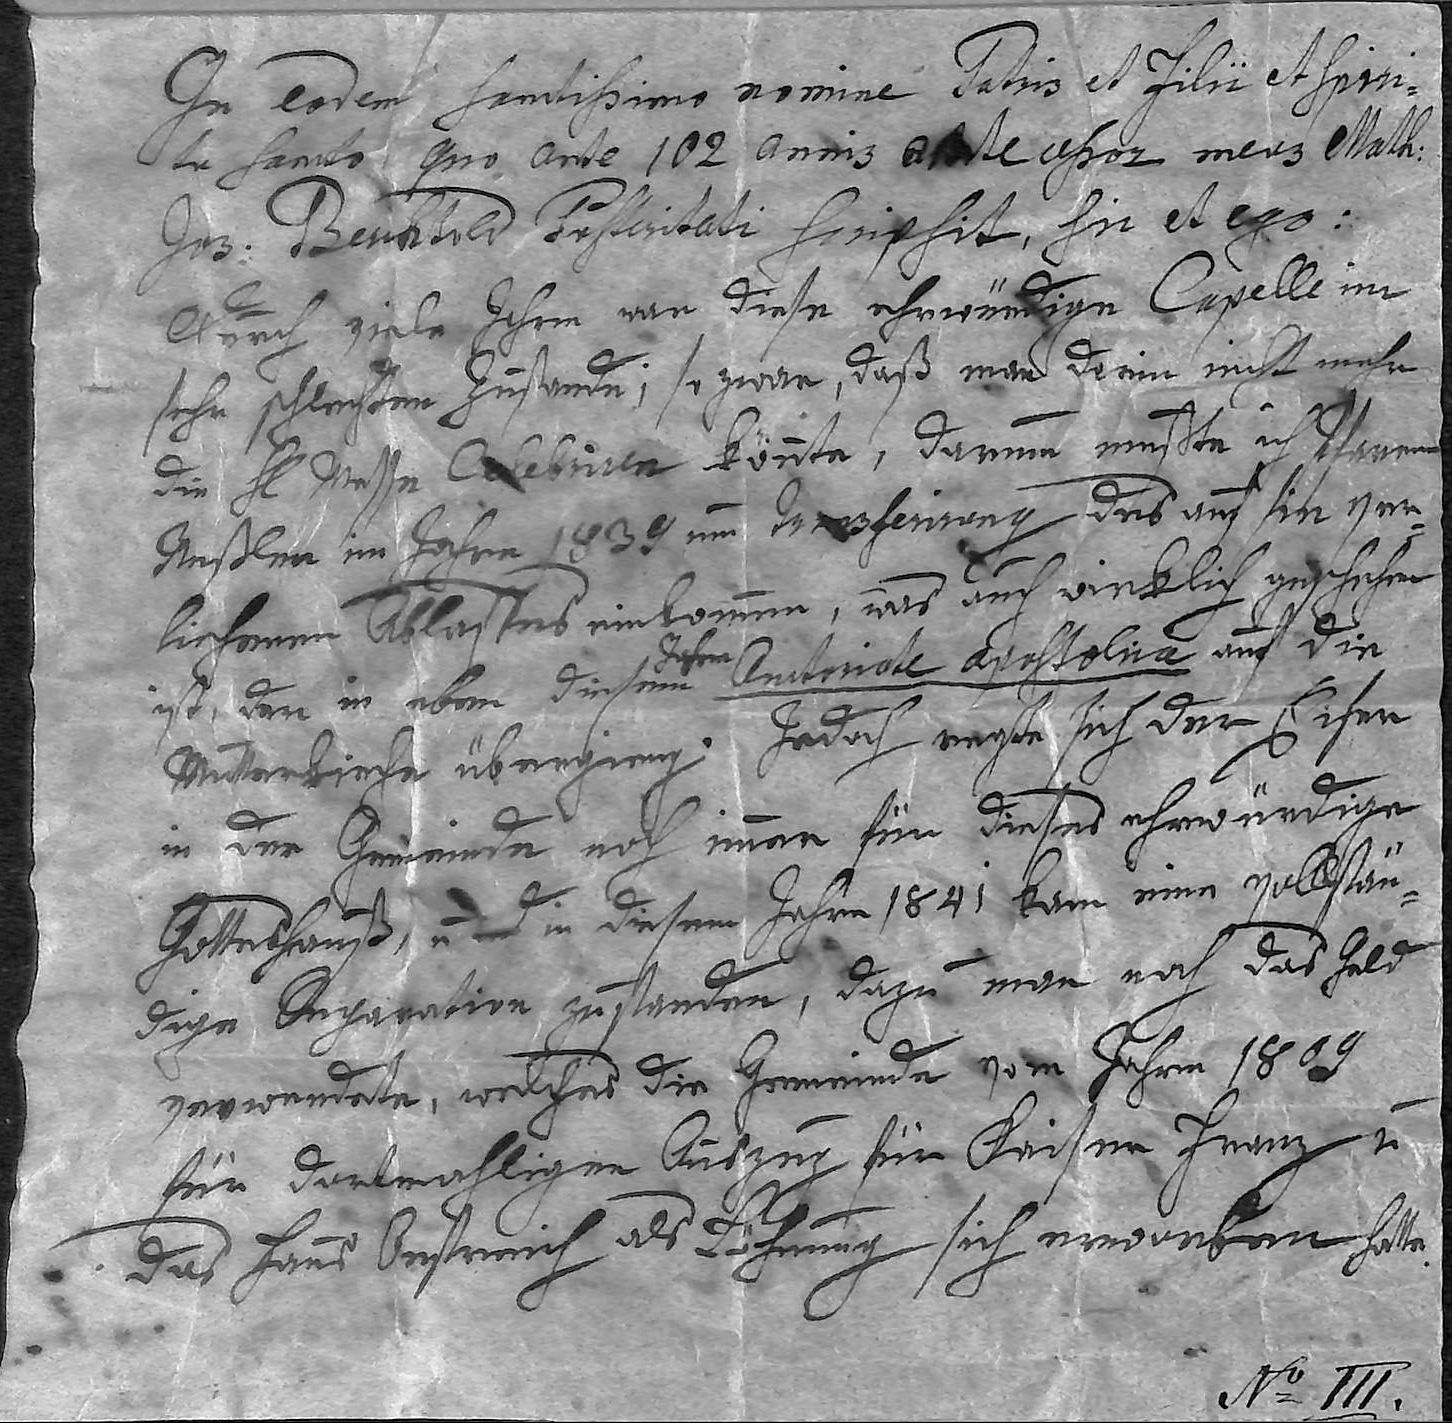 In eodem sanctissimo nomine Patris et Filii et Spiri-
tu sancto quo ante 102 annis ante cessor meus Math:
Jos: Berchtold Posteritati scripsit, sic et ego:
Durch viele Jahre war diese ehrwürdige Capelle im
sehr schlechten Zustande; so zwar, daß man darin nicht mehr
die hl Messe Celebriren konnte, darum mußte ich Pfarrer
Neßler im Jahre 1839 um Transferirung des auf sie ver-
liehenen Ablasses einkommen, was auch wirklich geschehen
ist, der in eben diesem Jahre Autoritate apostolica auf die
Mutterkirche übergieng. Jedoch regte sich der Eifer
in der Gemeinde noch immer für dieses ehrwürdige
Gotteshauß, und in diesem Jahre 1841 kam eine vollstän-
dige Reparation zustanden, dazu man noch das Geld
verwendete, welches die Gemeinde vom Jahre 1809
für dortmahligen Auszug für Kaiser Franz u
das Haus Oestreich als Löhnung sich erworben hatte.
No III.